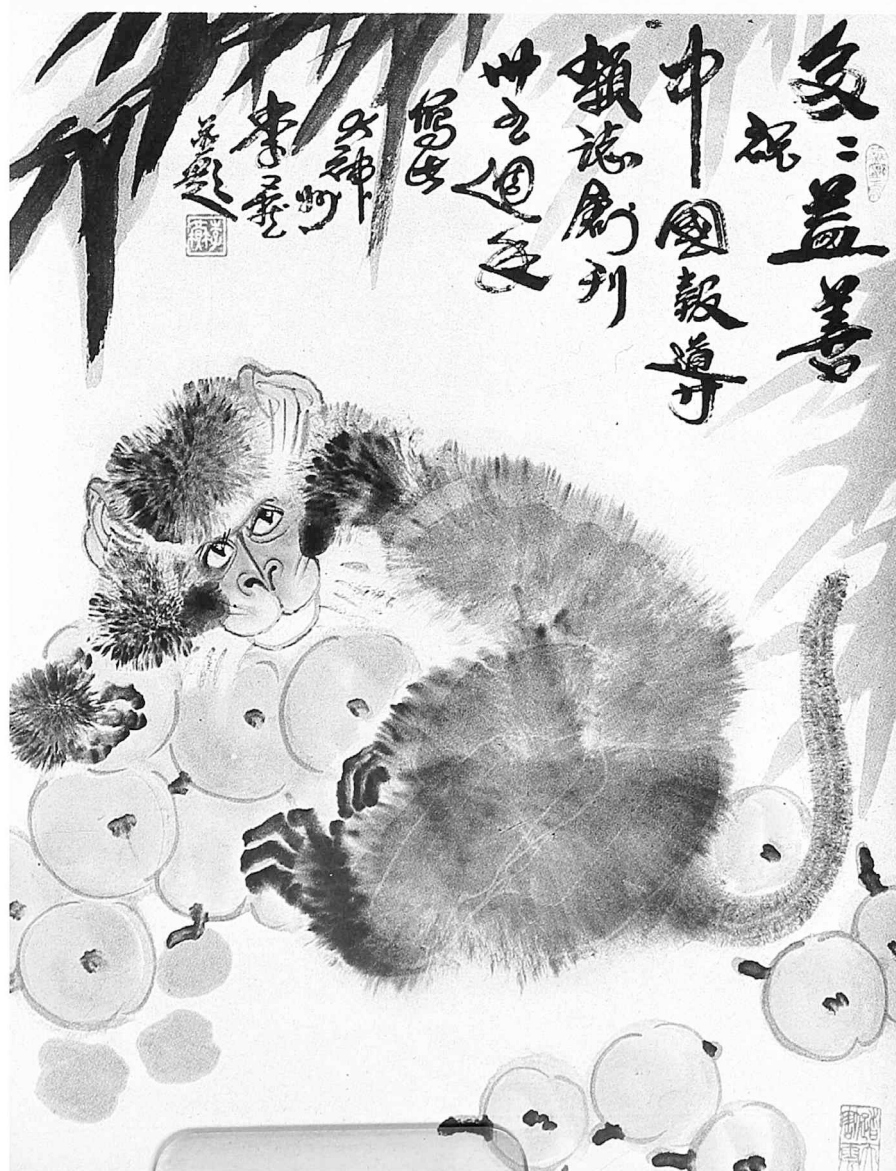 多〻益善
祝
中國報導
雜誌創刊
卅五週年
寫此
神州
李燕
并題